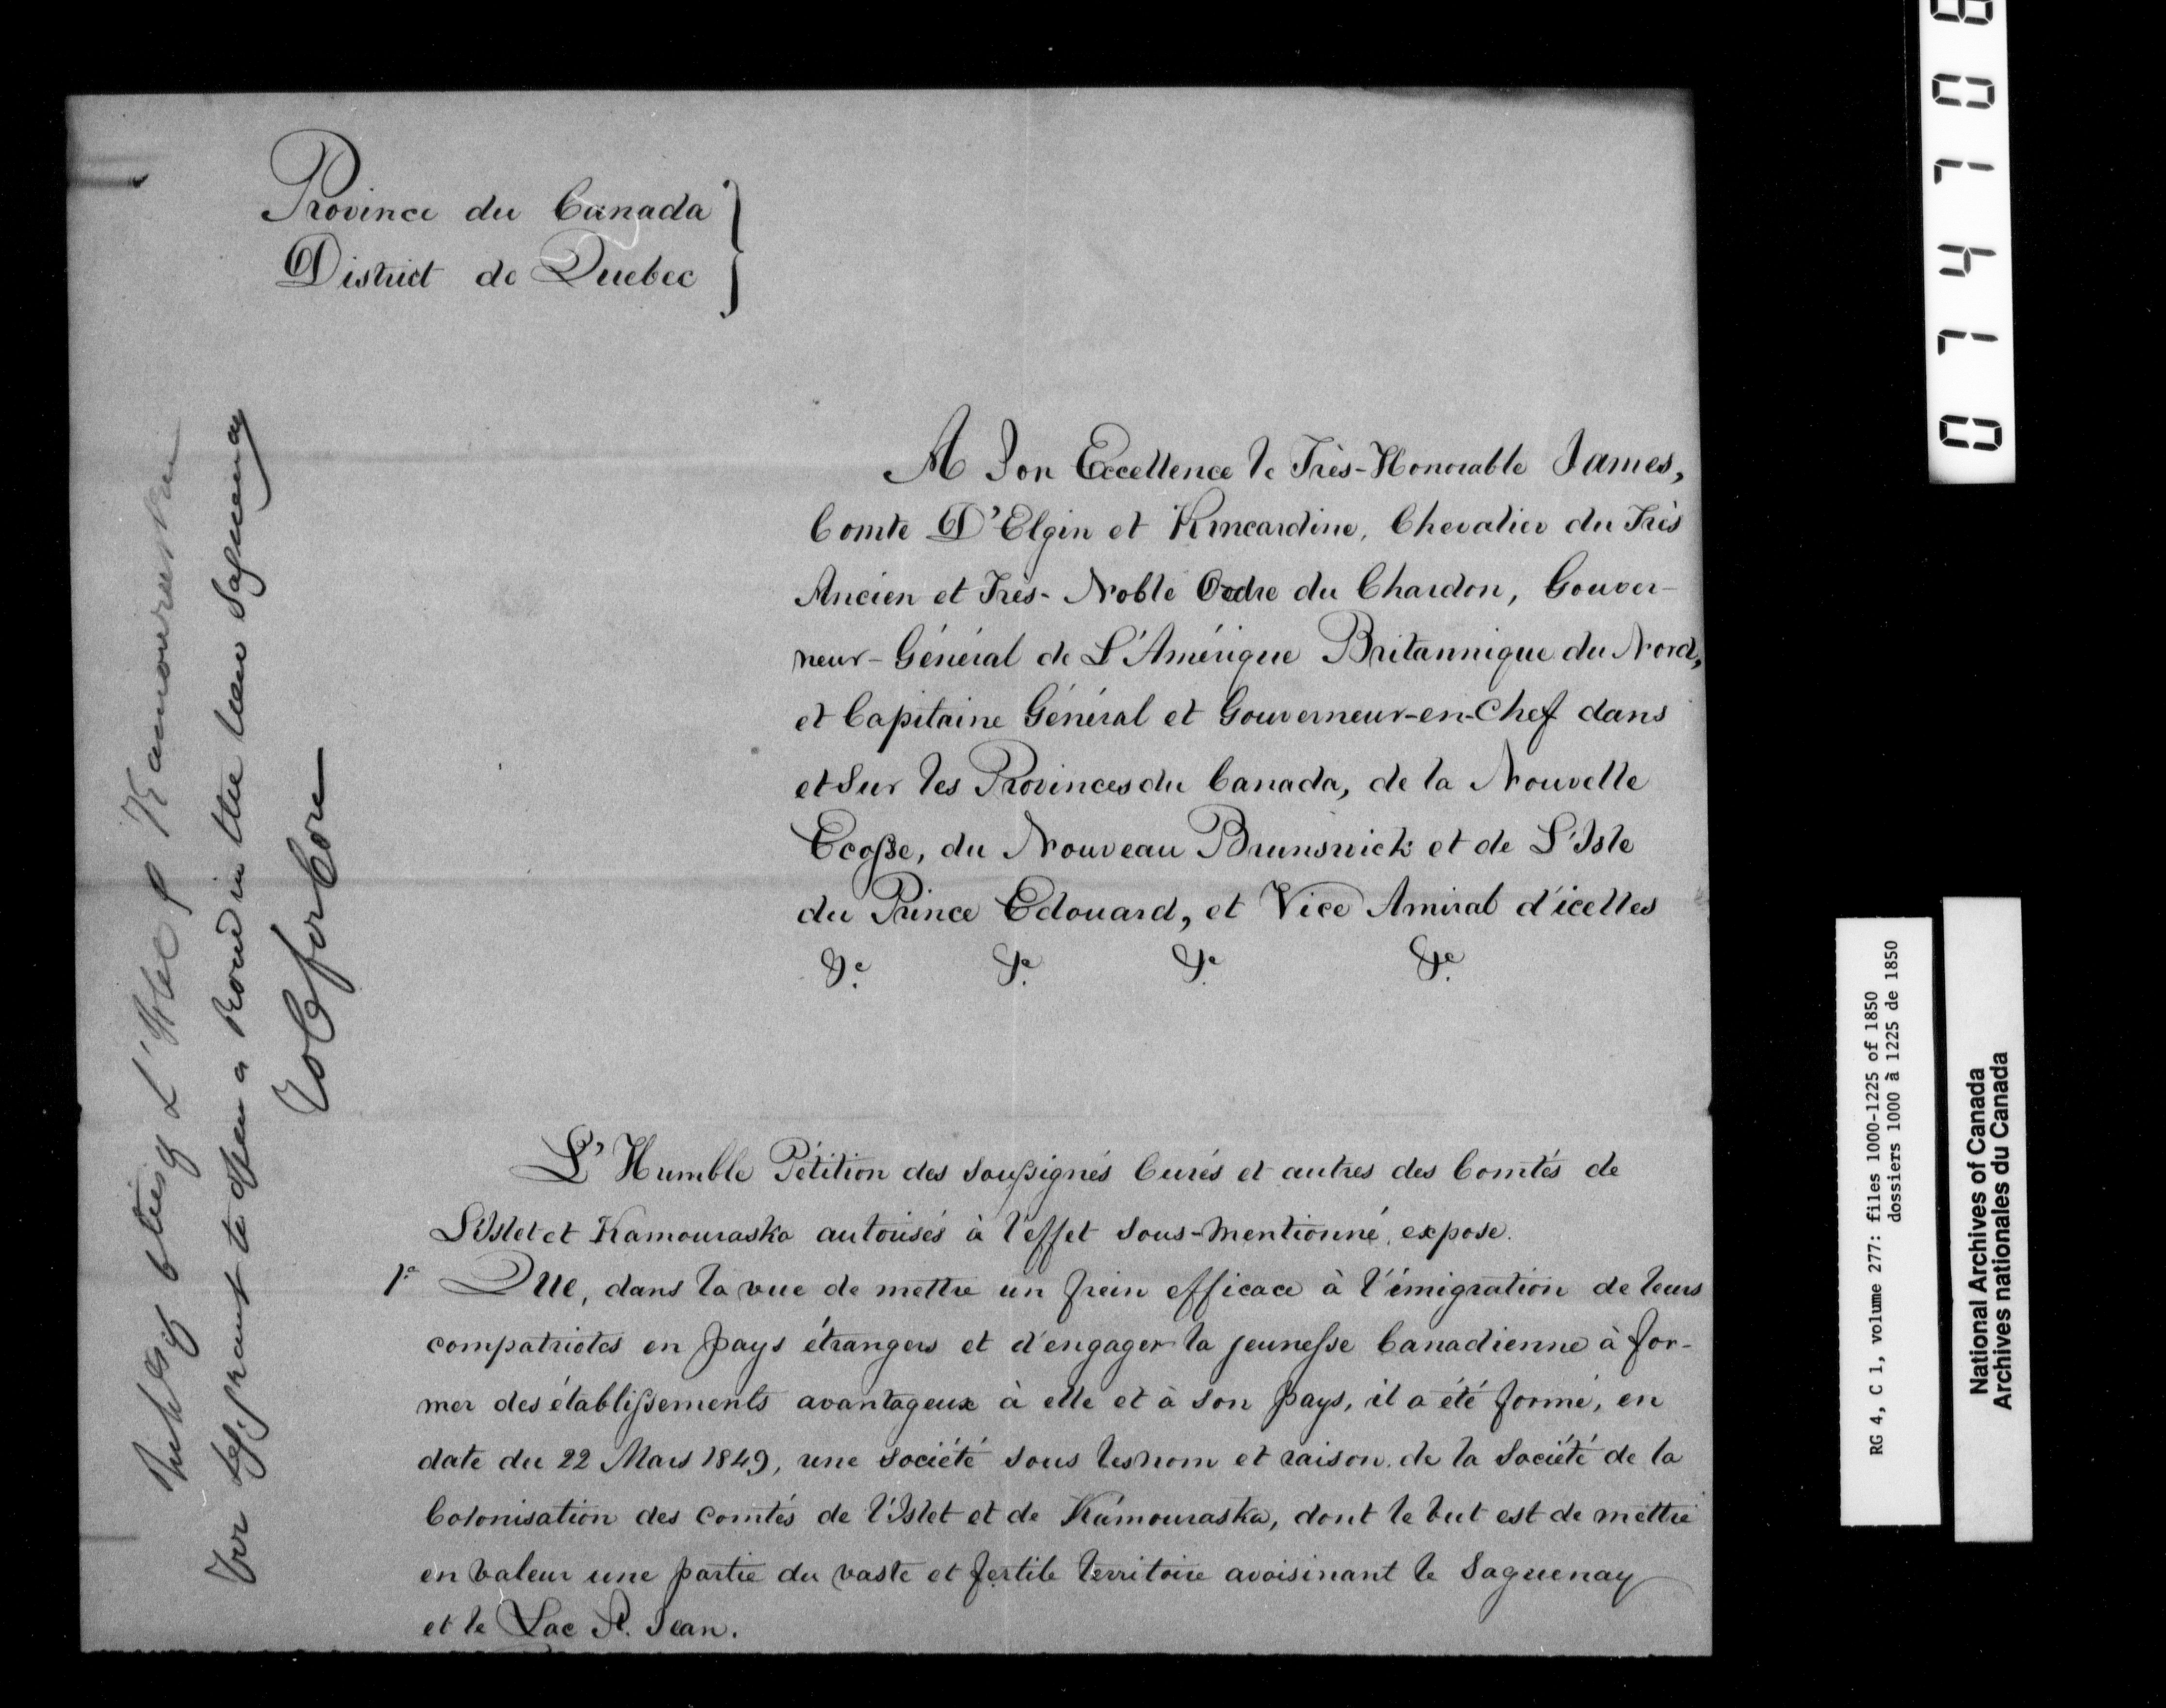 Province du Canada
District de Quebec
A Son Excellence le Très-Honorable James,
Comte D'Elgin et Kincardine, Chevalier du Très
Ancien et Très-Noble Ordre du Chardon, Gouver-
neur-Général de L'Amérique Britannique du Nord,
et Capitaine Général et Gouverneur-en-Chef dans
et Sur les Provinces du Canada, de la Nouvelle
Ecosse, du Nouveau Brunswick et de L'Isle
du Prince Edouard, et Vice Amiral d'icelles
&c. &c. &c. &c.
L'Humble Pétition des soussignés Curés et autres des Comtés de
L'Islet et Kamouraska autorisés à l'effet sous-mentionné, expose.
1° Que, dans la vue de mettre un frein efficace à l'émigration de leurs
compatriotes en pays étrangers et d'engager la jeunesse Canadienne à for-
mer des établissements avantageux à elle et à son pays, il a été formé, en
date du 22 Mars 1849, une société sous les nom et raison de la Société de la
Colonisation des comtés de l'Islet et de Kamouraska, dont le but est de mettre
en valeur une partie du vaste et fertile territoire avoisinant le Saguenay
et le Lac St. Jean.
of L'Islet & Kamouraska
For to open a Road in the Saguenay
07470
RG 4, C 1, volume 277: files 1000-1225 of 1850
dossiers 1000 à 1225 de 1850
National Archives of Canada
Archives nationales du Canada